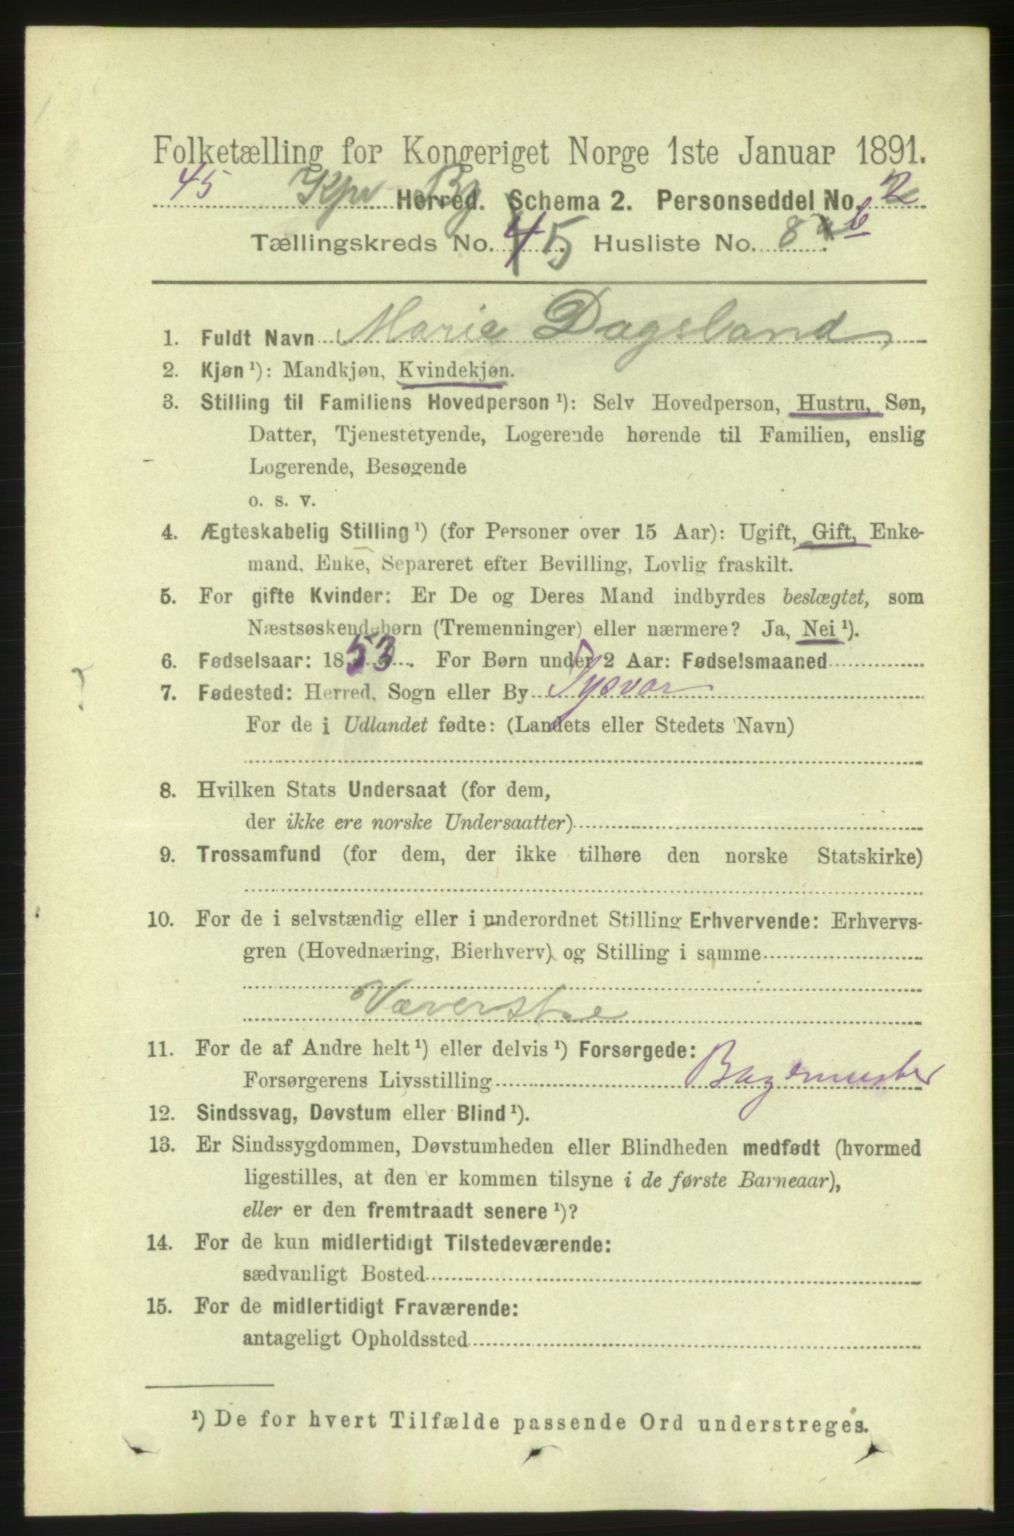 Folketælling for Kongeriget Norge 1ste Januar 1891.
45 Kp By Herred. Schema 2. Personseddel No. 2
Tællingskreds No. 45 Husliste No. 8 b
1. Fuldt Navn Marie Dagsland,
2. Kjøn ¹): Mandkjøn, Kvindekjøn.
3. Stilling til Familiens Hovedperson ¹): Selv Hovedperson, Hustru, Søn,
Datter, Tjenestetyende, Logerende hørende til Familien, enslig
Logerende, Besøgende
o. s. v.
4. Ægteskabelig Stilling ¹) (for Personer over 15 Aar): Ugift, Gift, Enke-
mand, Enke, Separeret efter Bevilling, Lovlig fraskilt.
5. For gifte Kvinder: Er De og Deres Mand indbyrdes beslægtet, som
Næstsøskendebørn (Tremenninger) eller nærmere? Ja, Nei ¹).
6. Fødselsaar: 1853. For Børn under 2 Aar: Fødselsmaaned
?
7. Fødested: Herred, Sogn eller By Tysvær
For de i Udlandet fødte: (Landets eller Stedets Navn)
8. Hvilken Stats Undersaat (for dem,
der ikke ere norske Undersaatter)
9. Trossamfund (for dem, der ikke tilhøre den norske Statskirke)
10. For de i selvstændig eller i underordnet Stilling Erhvervende: Erhvervs-
gren (Hovednæring, Bierhverv) og Stilling i samme
Væverske
11. For de af Andre helt ¹) eller delvis ¹) Forsørgede:
Forsørgerens Livsstilling Bagermester
12. Sindssvag, Døvstum eller Blind ¹).
13. Er Sindssygdommen, Døvstumheden eller Blindheden medfødt (hvormed
ligestilles, at den er kommen tilsyne i de første Barneaar),
eller er den fremtraadt senere ¹)?
14. For de kun midlertidigt Tilstedeværende:
sædvanligt Bosted
15. For de midlertidigt Fraværende:
antageligt Opholdssted
¹) De for hvert Tilfælde passende Ord understreges.